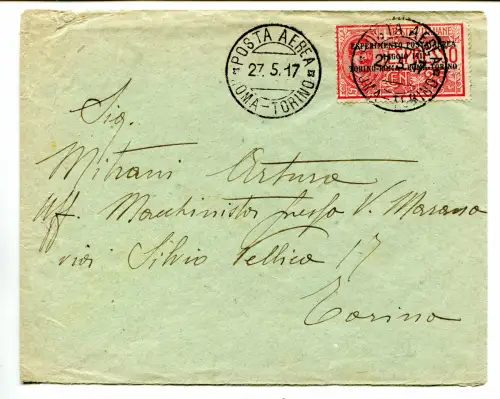 POSTA AEREA
27.5.17
ROMA-TORINO
ESPERIMENTO POSTA AEREA
MAGGIO 1917
TORINO-ROMA · ROMA-TORINO
Sig.
Mitrani Arturo
Uff. Macchinista presso V. Marano
via Silvio Pellico 17
Torino